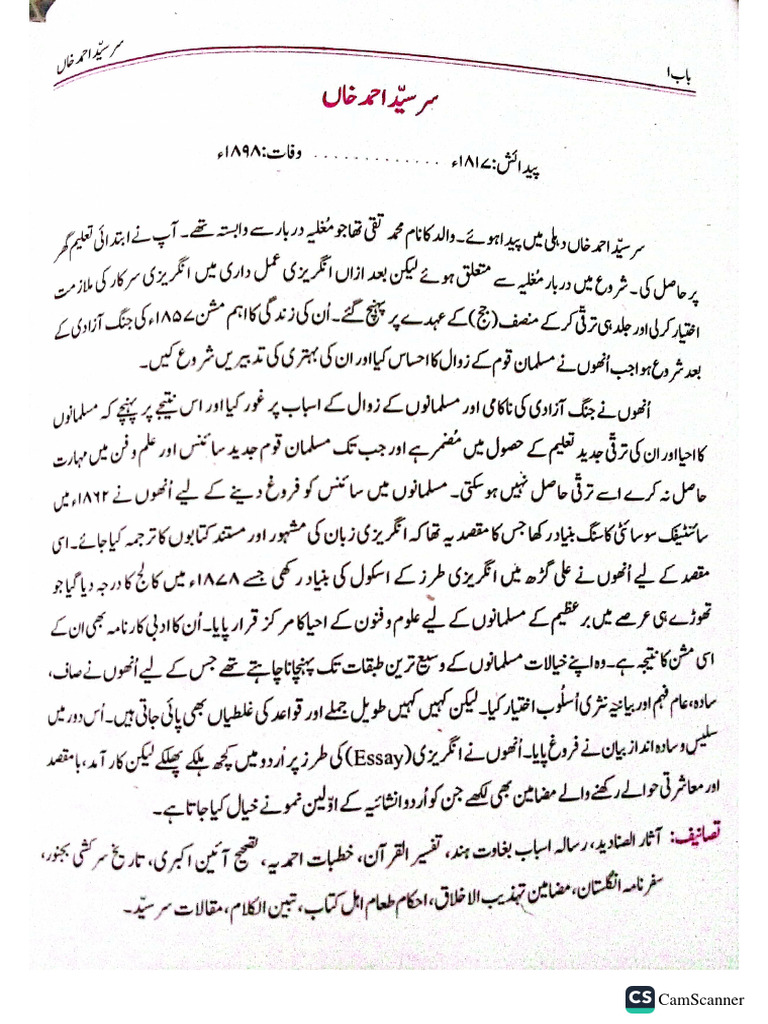 باب ۱
سر سیّد احمد خاں
سر سیّد احمد خاں
پیدائش: ۱۸۱۷ء ............. وفات: ۱۸۹۸ء
سر سیّد احمد خاں دہلی میں پیدا ہوئے۔ والد کا نام محمد تقی تھا جو مُغلیہ دربار سے وابستہ تھے۔ آپ نے ابتدائی تعلیم گھر
پر حاصل کی۔ شروع میں دربار مُغلیہ سے متعلق ہوئے لیکن بعد ازاں انگریزی عمل داری میں انگریزی سرکار کی ملازمت
اختیار کرلی اور جلد ہی ترقی کر کے منصف (جج) کے عہدے پر پہنچ گئے۔ اُن کی زندگی کا اہم مشن ۱۸۵۷ء کی جنگ آزادی کے
بعد شروع ہوا جب اُنھوں نے مسلمان قوم کے زوال کا احساس کیا اور ان کی بہتری کی تدبیریں شروع کیں۔
اُنھوں نے جنگ آزادی کی ناکامی اور مسلمانوں کے زوال کے اسباب پر غور کیا اور اس نتیجے پر پہنچے کہ مسلمانوں
کا احیا اور ان کی ترقّی جدید تعلیم کے حصول میں مُضمر ہے اور جب تک مسلمان قوم جدید سائنس اور علم و فن میں مہارت
حاصل نہ کرے اسے ترقّی حاصل نہیں ہوسکتی۔ مسلمانوں میں سائنس کو فروغ دینے کے لیے اُنھوں نے ۱۸۶۲ء میں
سائنٹیفک سوسائٹی کا سنگ بنیاد رکھا جس کا مقصد یہ تھا کہ انگریزی زبان کی مشہور اور مستند کتابوں کا ترجمہ کیا جائے۔ اسی
مقصد کے لیے اُنھوں نے علی گڑھ میں انگریزی طرز کے اسکول کی بنیاد رکھی جسے ۱۸۷۸ء میں کالج کا درجہ دیا گیا جو
تھوڑے ہی عرصے میں برعظیم کے مسلمانوں کے لیے علوم و فنون کے احیا کا مرکز قرار پایا۔ اُن کا ادبی کارنامہ بھی ان کے
اسی مشن کا نتیجہ ہے۔ وہ اپنے خیالات مسلمانوں کے وسیع ترین طبقات تک پہنچانا چاہتے تھے جس کے لیے اُنھوں نے صاف،
سادہ، عام فہم اور بیانیہ نثری اُسلُوب اختیار کیا۔ لیکن کہیں کہیں طویل جملے اور قواعد کی غلطیاں بھی پائی جاتی ہیں۔ اُس دور میں
سلیس و سادہ انداز بیان نے فروغ پایا۔ اُنھوں نے انگریزی (Essay) کی طرز پر اُردو میں کچھ ہلکے پھلکے لیکن کار آمد، بامقصد
اور معاشرتی حوالے رکھنے والے مضامین بھی لکھے جن کو اُردو انشائیہ کے اوّلین نمونے خیال کیا جاتا ہے۔
تصانیف: آثار الصنادید، رسالہ اسباب بغاوت ہند، تفسیر القرآن، خطبات احمدیہ، تصحیح آئین اکبری، تاریخ سرکشی بجنور،
سفر نامہ انگلستان، مضامین تہذیب الاخلاق، احکام طعام اہل کتاب، تبین الکلام، مقالات سرسیّد۔
CS CamScanner